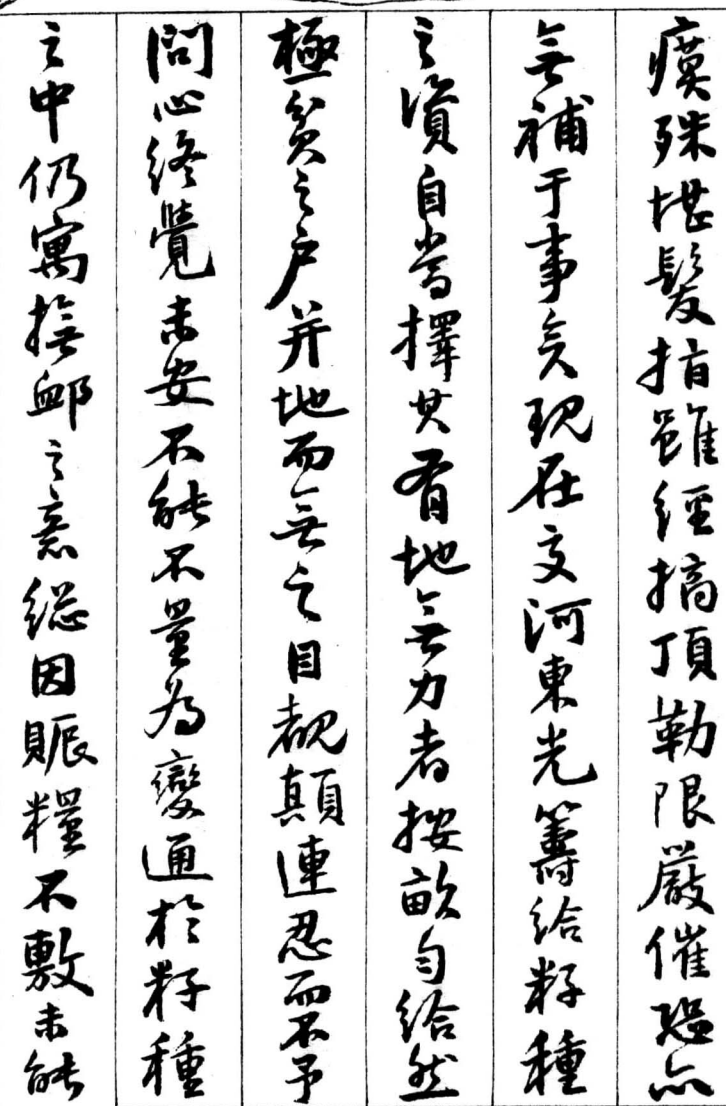 瘼殊堪髮指雖經摘頂勒限嚴催恐亦
無補于事矣現在交河東光籌給籽種
之資自當擇其有地無力者按畝勻給然
極貧之户并地而無之目覩顛連忍而不予
問心終覺未安不能不量為變通於籽種
之中仍寓撫卹之意總因賑糧不敷未能